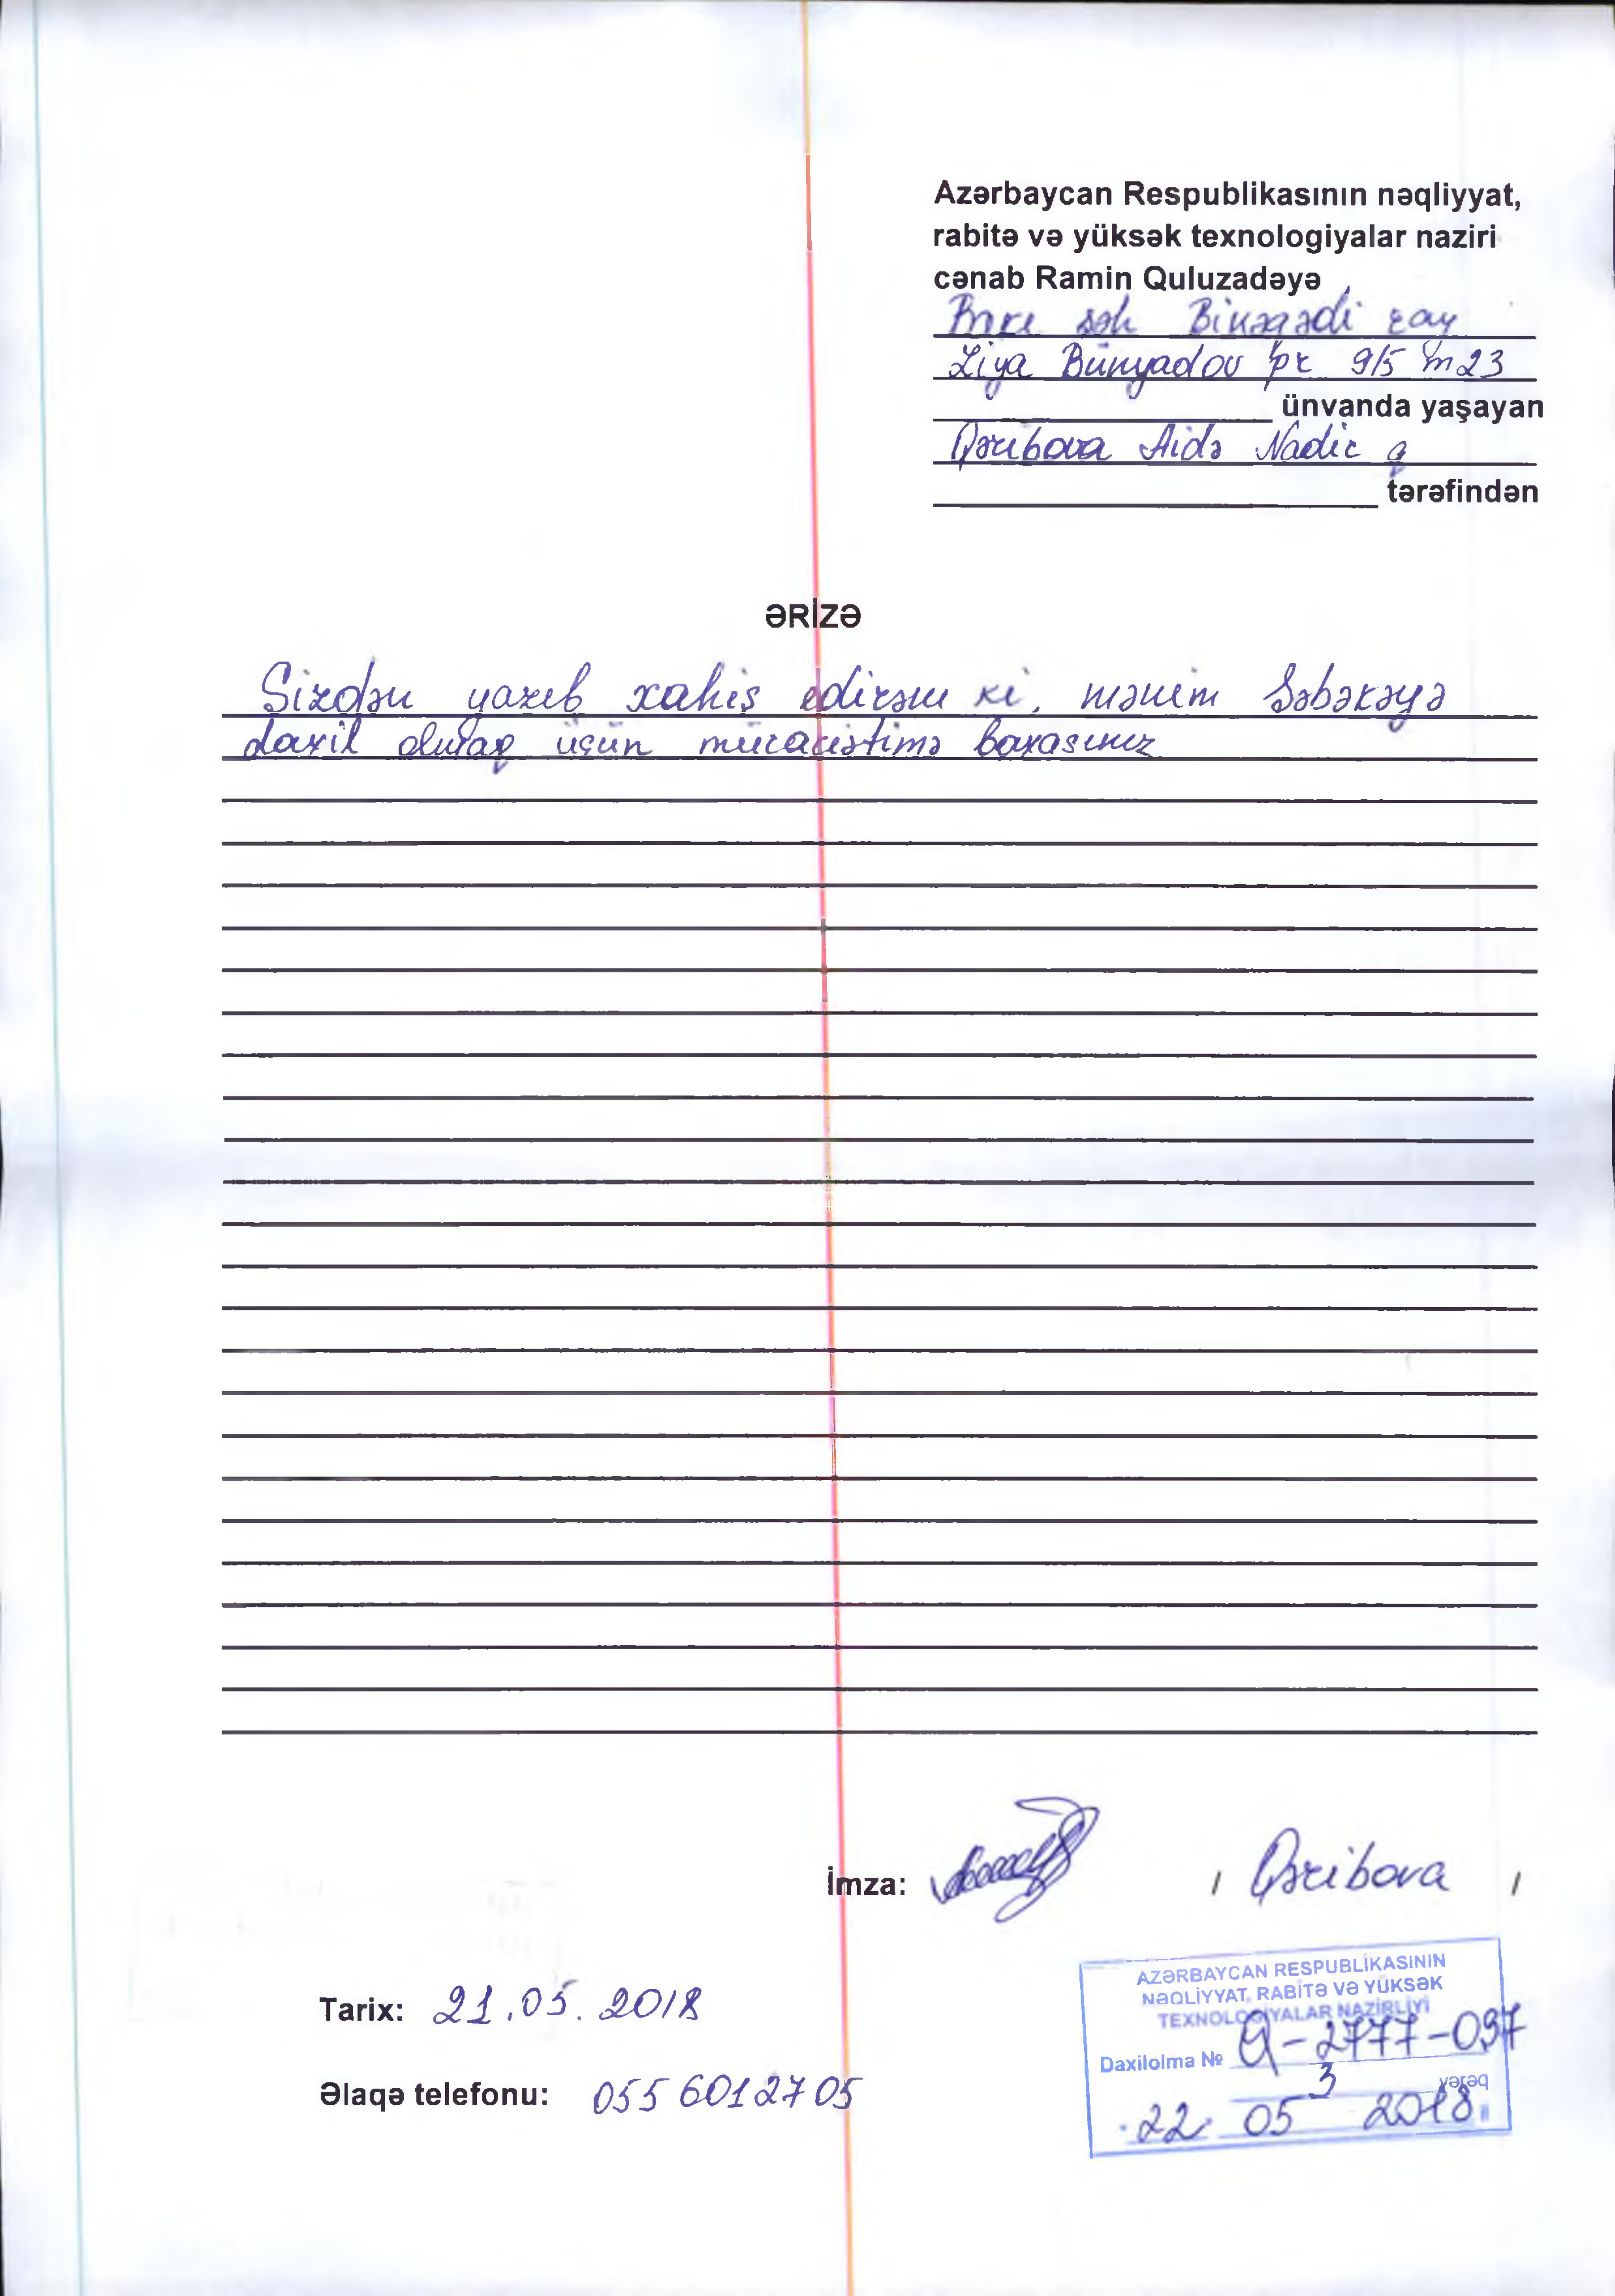 Azərbaycan Respublikasının nəqliyyat,
rabitə və yüksək texnologiyalar naziri
cənab Ramin Quluzadəyə
şəh Binəqədi ray
Ziya Bünyadov pr 9/5 m 23
ünvanda yaşayan
Qəribova Aidə Nadir q
tərəfindən
ƏRİZƏ
Sizdən yazıb xahiş edirəm ki, mənim Şəbəkəyə
daxil olmaq üçün müraciətimə baxasınız
İmza: / Qəribova /
Tarix: 21.05.2018
Əlaqə telefonu: 055 601 27 05
AZƏRBAYCAN RESPUBLİKASININ
NƏQLİYYAT, RABİTƏ VƏ YÜKSƏK
TEXNOLOGİYALAR NAZİRLİYİ
Daxilolma № Q-2777-097
3 vərəq
22 05 2018